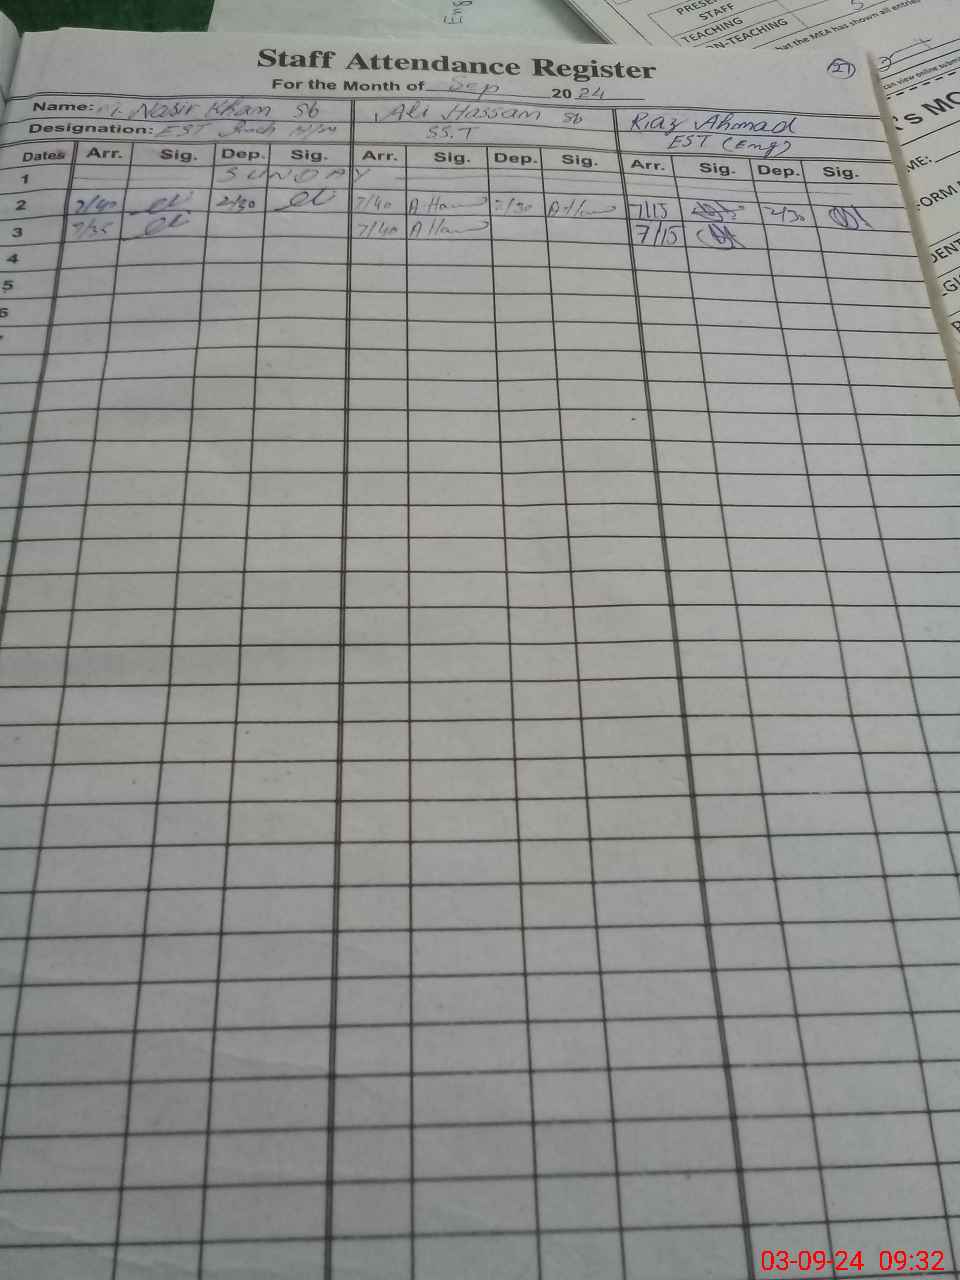 Staff Attendance Register
21
For the Month of Sep 2024
Name: M. Nasir Khan Sb Ali Hassan Sb Riaz Ahmad
Designation: EST SS.T EST (Eng)
Dates Arr. Sig. Dep. Sig. Arr. Sig. Dep. Sig. Arr. Sig. Dep. Sig.
1 SUNDAY
2 7/40 2/30 7/40 A.Hassan 2/30 A.Hassan 7/15 2/30
3 7/35 7/40 A.Hassan 7/15
4
5
6
STAFF
TEACHING 5
N-TEACHING
hat the MEA has shown all entries
can view online
'S MO
ME:
FORM
DENT
03-09-24 09:32